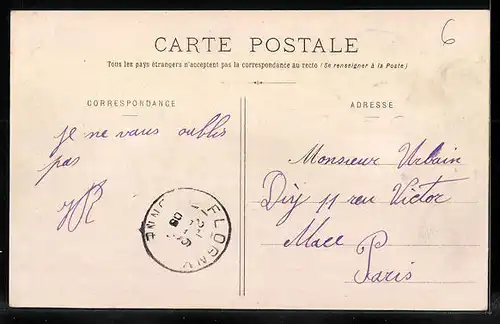 6
CARTE POSTALE
Tous les pays étrangers n'acceptent pas la correspondance au recto (Se renseigner à la Poste)
CORRESPONDANCE
ADRESSE
je ne vous oublis
pas
Monsieur Urbain
Diý 11 reu Victor
Mace
Paris
FLOGNY
YONNE